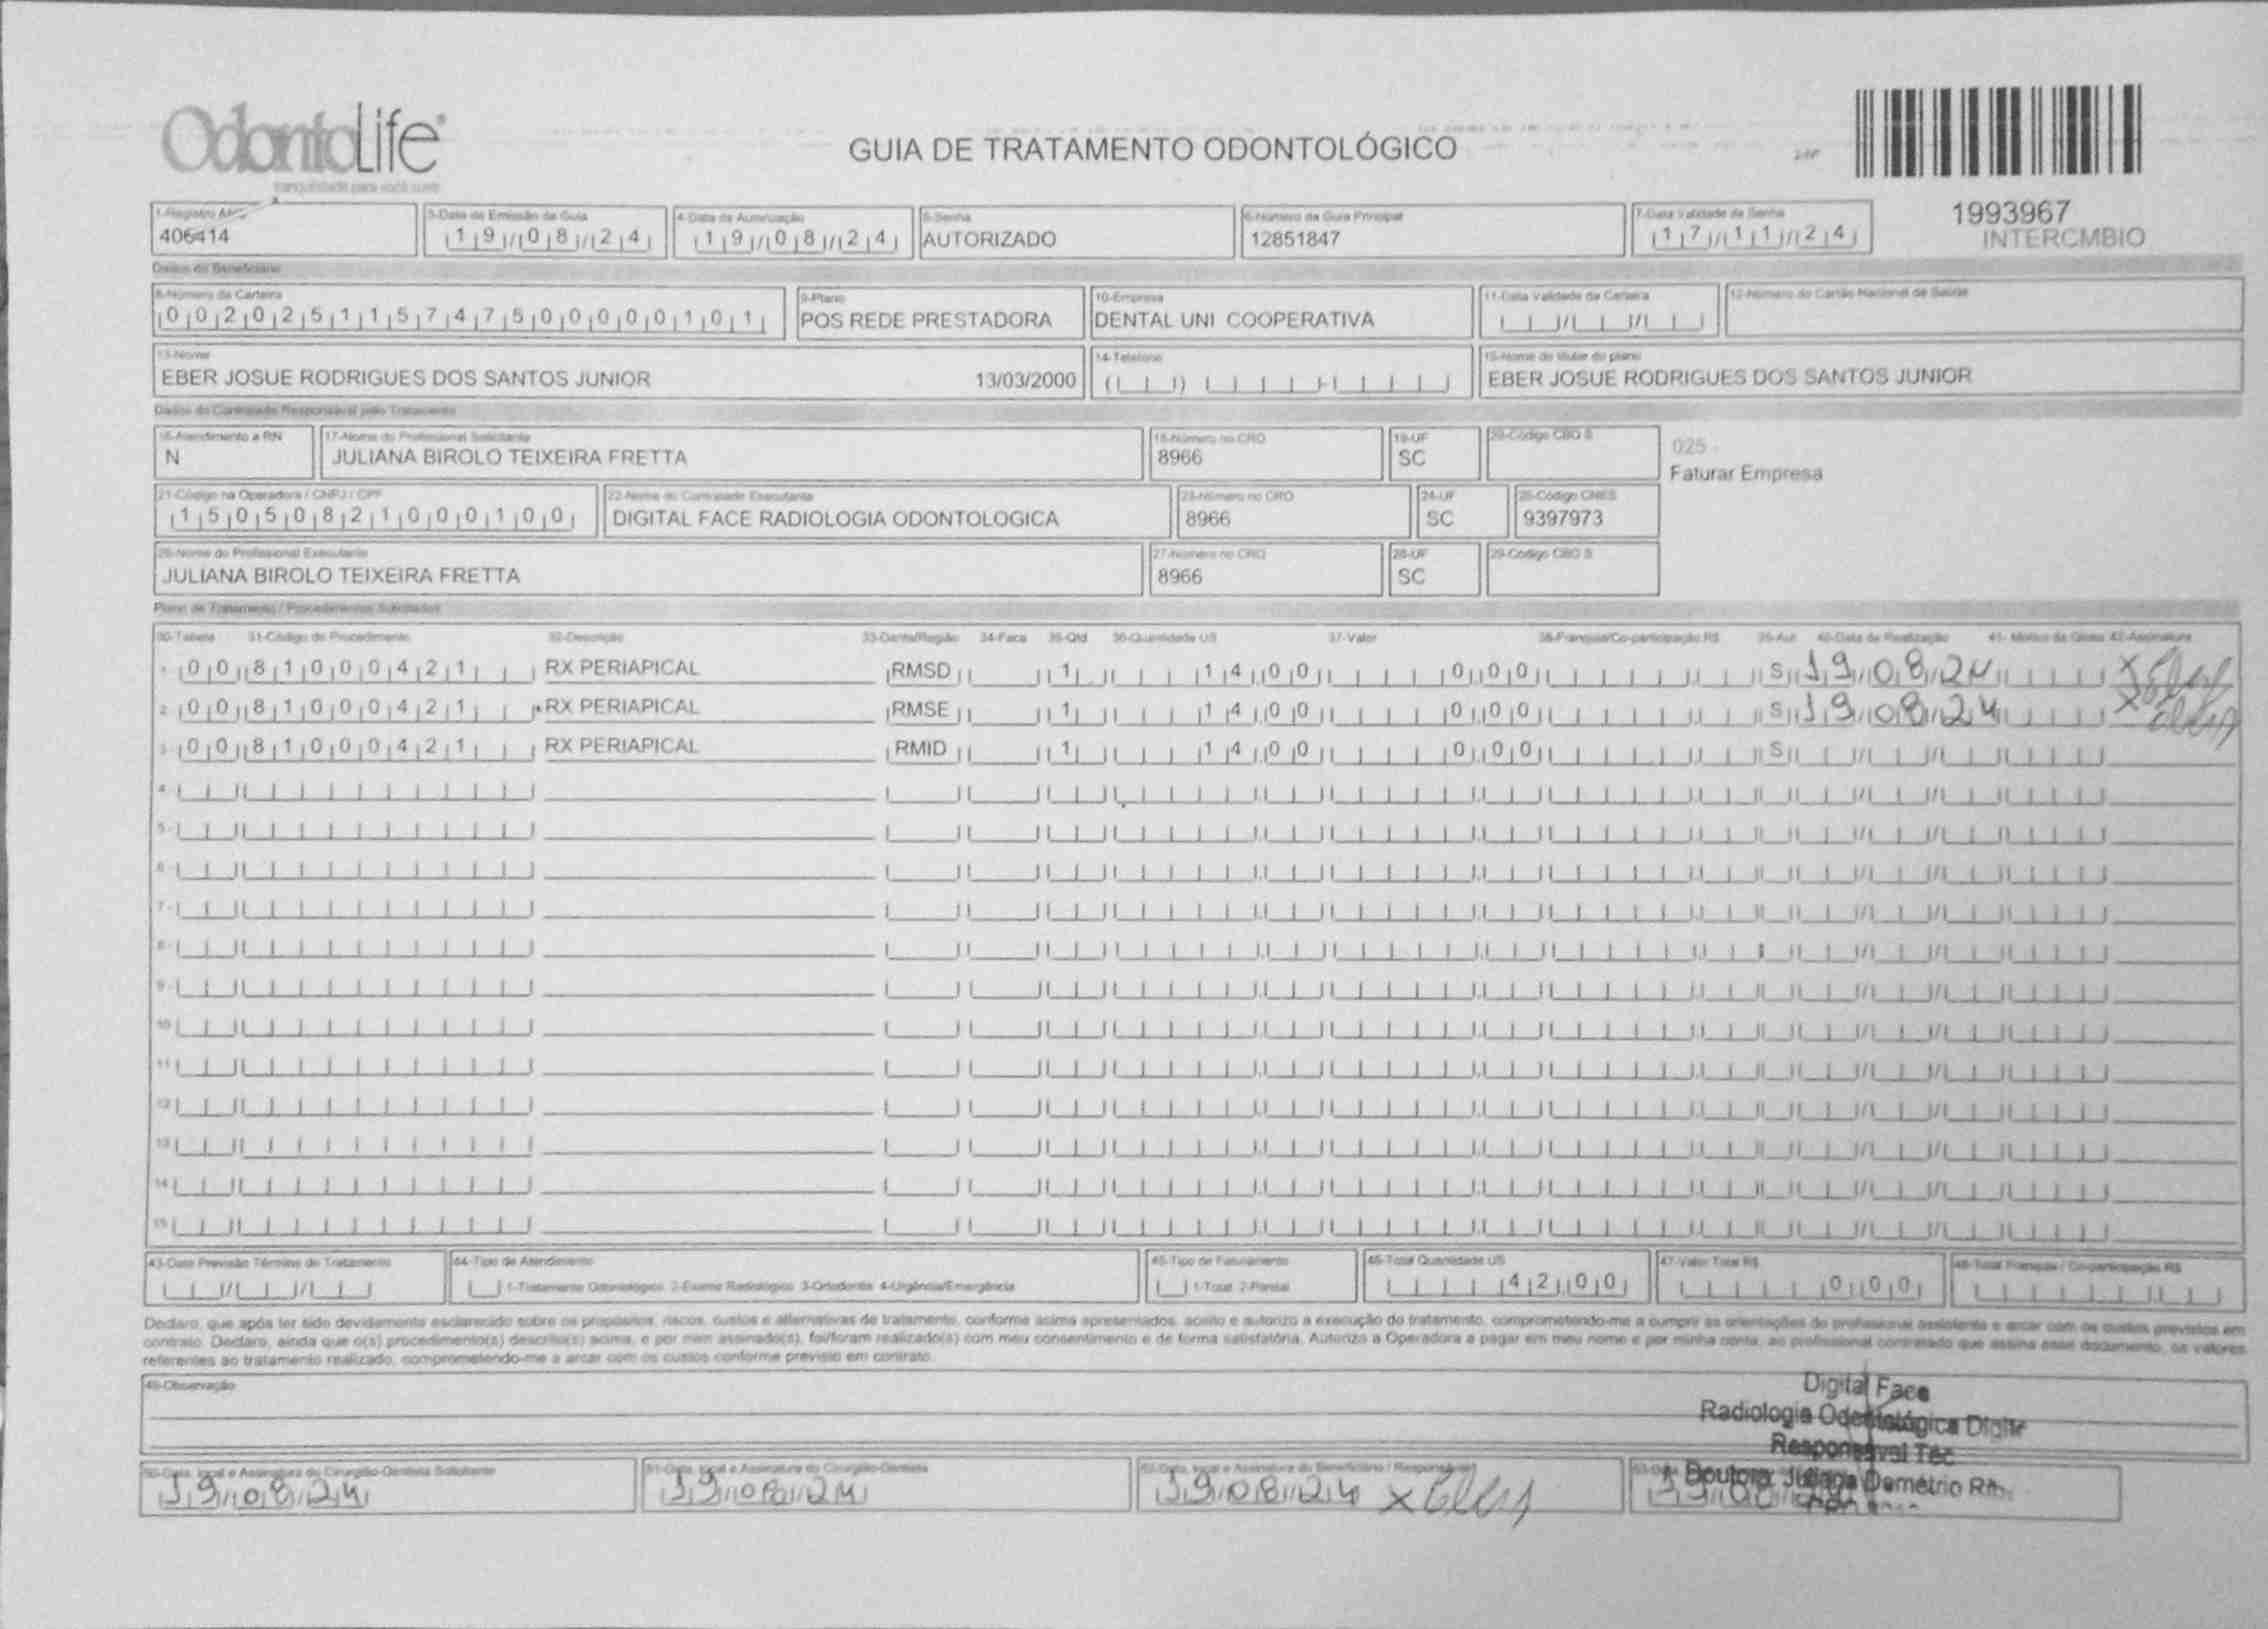 OdontoLife
GUIA DE TRATAMENTO ODONTOLÓGICO
1-Registro ANS
406414
3-Data de Emissão da Guia
19/08/24
4-Data da Autorização
19/08/24
5-Senha
AUTORIZADO
6-Número da Guia Principal
12851847
7-Data Validade da Senha
17/11/24
1993967
INTERCMBIO
Dados do Beneficiário
8-Número da Carteira
002025115747500000101
9-Plano
POS REDE PRESTADORA
10-Empresa
DENTAL UNI COOPERATIVA
11-Data Validade da Carteira
12-Número do Cartão Nacional de Saúde
13-Nome
EBER JOSUE RODRIGUES DOS SANTOS JUNIOR 13/03/2000
14-Telefone
15-Nome do titular do plano
EBER JOSUE RODRIGUES DOS SANTOS JUNIOR
Dados do Contratado Responsável pelo Tratamento
16-Atendimento a RN
N
17-Nome do Profissional Solicitante
JULIANA BIROLO TEIXEIRA FRETTA
18-Número no CRO
8966
19-UF
SC
20-Código CBO S
025 -
Faturar Empresa
21-Código na Operadora / CNPJ / CPF
15050821000100
22-Nome do Contratado Executante
DIGITAL FACE RADIOLOGIA ODONTOLOGICA
23-Número no CRO
8966
24-UF
SC
25-Código CNES
9397973
26-Nome do Profissional Executante
JULIANA BIROLO TEIXEIRA FRETTA
27-Número no CRO
8966
28-UF
SC
29-Código CBO S
Plano de Tratamento / Procedimentos Solicitados
30-Tabela 31-Código do Procedimento 32-Descrição 33-Dente/Região 34-Face 35-Qtd 36-Quantidade US 37-Valor 38-Franquia/Co-participação R$ 39-Aut 40-Data de Realização 41- Motivo da Glosa 42-Assinatura
1 00 81000421 RX PERIAPICAL RMSD 1 14,00 0,00 S 19/08/24 x
2 00 81000421 RX PERIAPICAL RMSE 1 14,00 0,00 S 19/08/24 x
3 00 81000421 RX PERIAPICAL RMID 1 14,00 0,00 S
4
5
6
7
8
9
10
11
12
13
14
15
43-Data Previsão Término do Tratamento
44-Tipo de Atendimento
1-Tratamento Odontológico 2-Exame Radiológico 3-Ortodontia 4-Urgência/Emergência
45-Tipo de Faturamento
1-Total 2-Parcial
46-Total Quantidade US
42,00
47-Valor Total R$
0,00
48-Total Franquia / Co-participação R$
Declaro, que após ter sido devidamente esclarecido sobre os propósitos, riscos, custos e alternativas de tratamento, conforme acima apresentados, aceito e autorizo a execução do tratamento, comprometendo-me a cumprir as orientações do profissional assistente e arcar com os custos previstos em
contrato. Declaro, ainda que o(s) procedimento(s) descrito(s) acima, e por mim assinado(s), foi/foram realizado(s) com meu consentimento e de forma satisfatória. Autorizo a Operadora a pagar em meu nome e por minha conta, ao profissional contratado que assina esse documento, os valores
referentes ao tratamento realizado, comprometendo-me a arcar com os custos conforme previsto em contrato.
49-Observação
Digital Face
Radiologia Odontológica Digital
Responsável Tec
Doutora: Juliana Demétrio
50-Data, local e Assinatura do Cirurgião-Dentista Solicitante
19/08/24
51-Data, local e Assinatura do Cirurgião-Dentista
19/08/24
52-Data, local e Assinatura do Beneficiário / Responsável
19/08/24 x